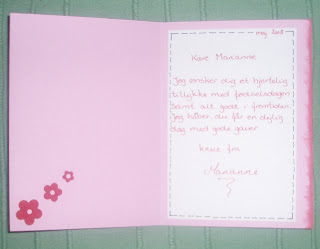 maj 2008
Kære Marianne
Jeg ønsker dig et hjertelig
tillykke med fødselsdagen
samt alt godt i fremtiden.
Jeg håber, du får en dejlig
dag med gode gaver
Knus fra
Marianne